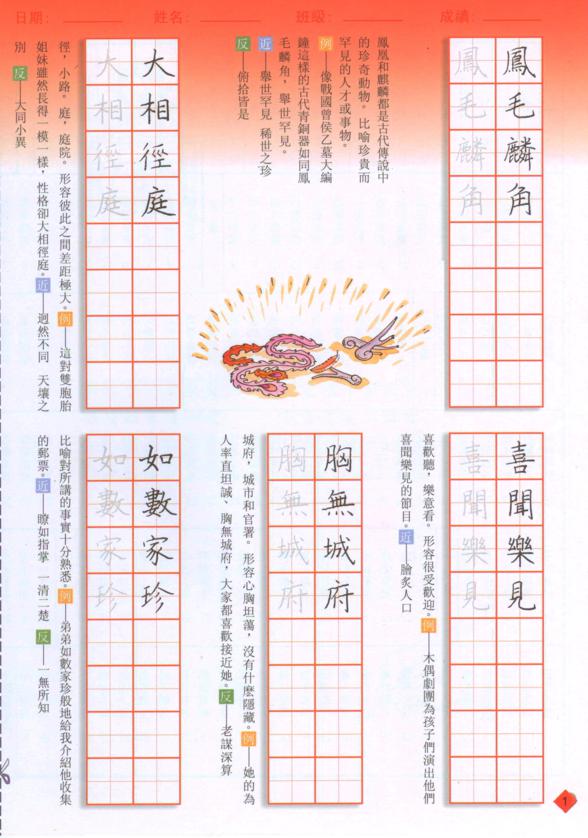 日期：
姓名：
班級：
成績：
鳳毛麟角
鳳毛麟角
鳳凰和麒麟都是古代傳說中
的珍奇動物。比喻珍貴而
罕見的人才或事物。
例——像戰國曾侯乙墓大編
鐘這樣的古代青銅器如同鳳
毛麟角，舉世罕見。
近——舉世罕見 稀世之珍
反——俯拾皆是
大相徑庭
大相徑庭
徑，小路。庭，庭院。形容彼此之間差距極大。例——這對雙胞胎
姐妹雖然長得一模一樣，性格卻大相徑庭。近——迥然不同 天壤之
別 反——大同小異
喜聞樂見
喜聞樂見
喜歡聽，樂意看。形容很受歡迎。例——木偶劇團為孩子們演出他們
喜聞樂見的節目。近——膾炙人口
胸無城府
胸無城府
城府，城市和官署。形容心胸坦蕩，沒有什麼隱藏。例——她的為
人率直坦誠、胸無城府，大家都喜歡接近她。反——老謀深算
如數家珍
如數家珍
比喻對所講的事實十分熟悉。例——弟弟如數家珍般地給我介紹他收集
的郵票。近——瞭如指掌 一清二楚 反——一無所知
1